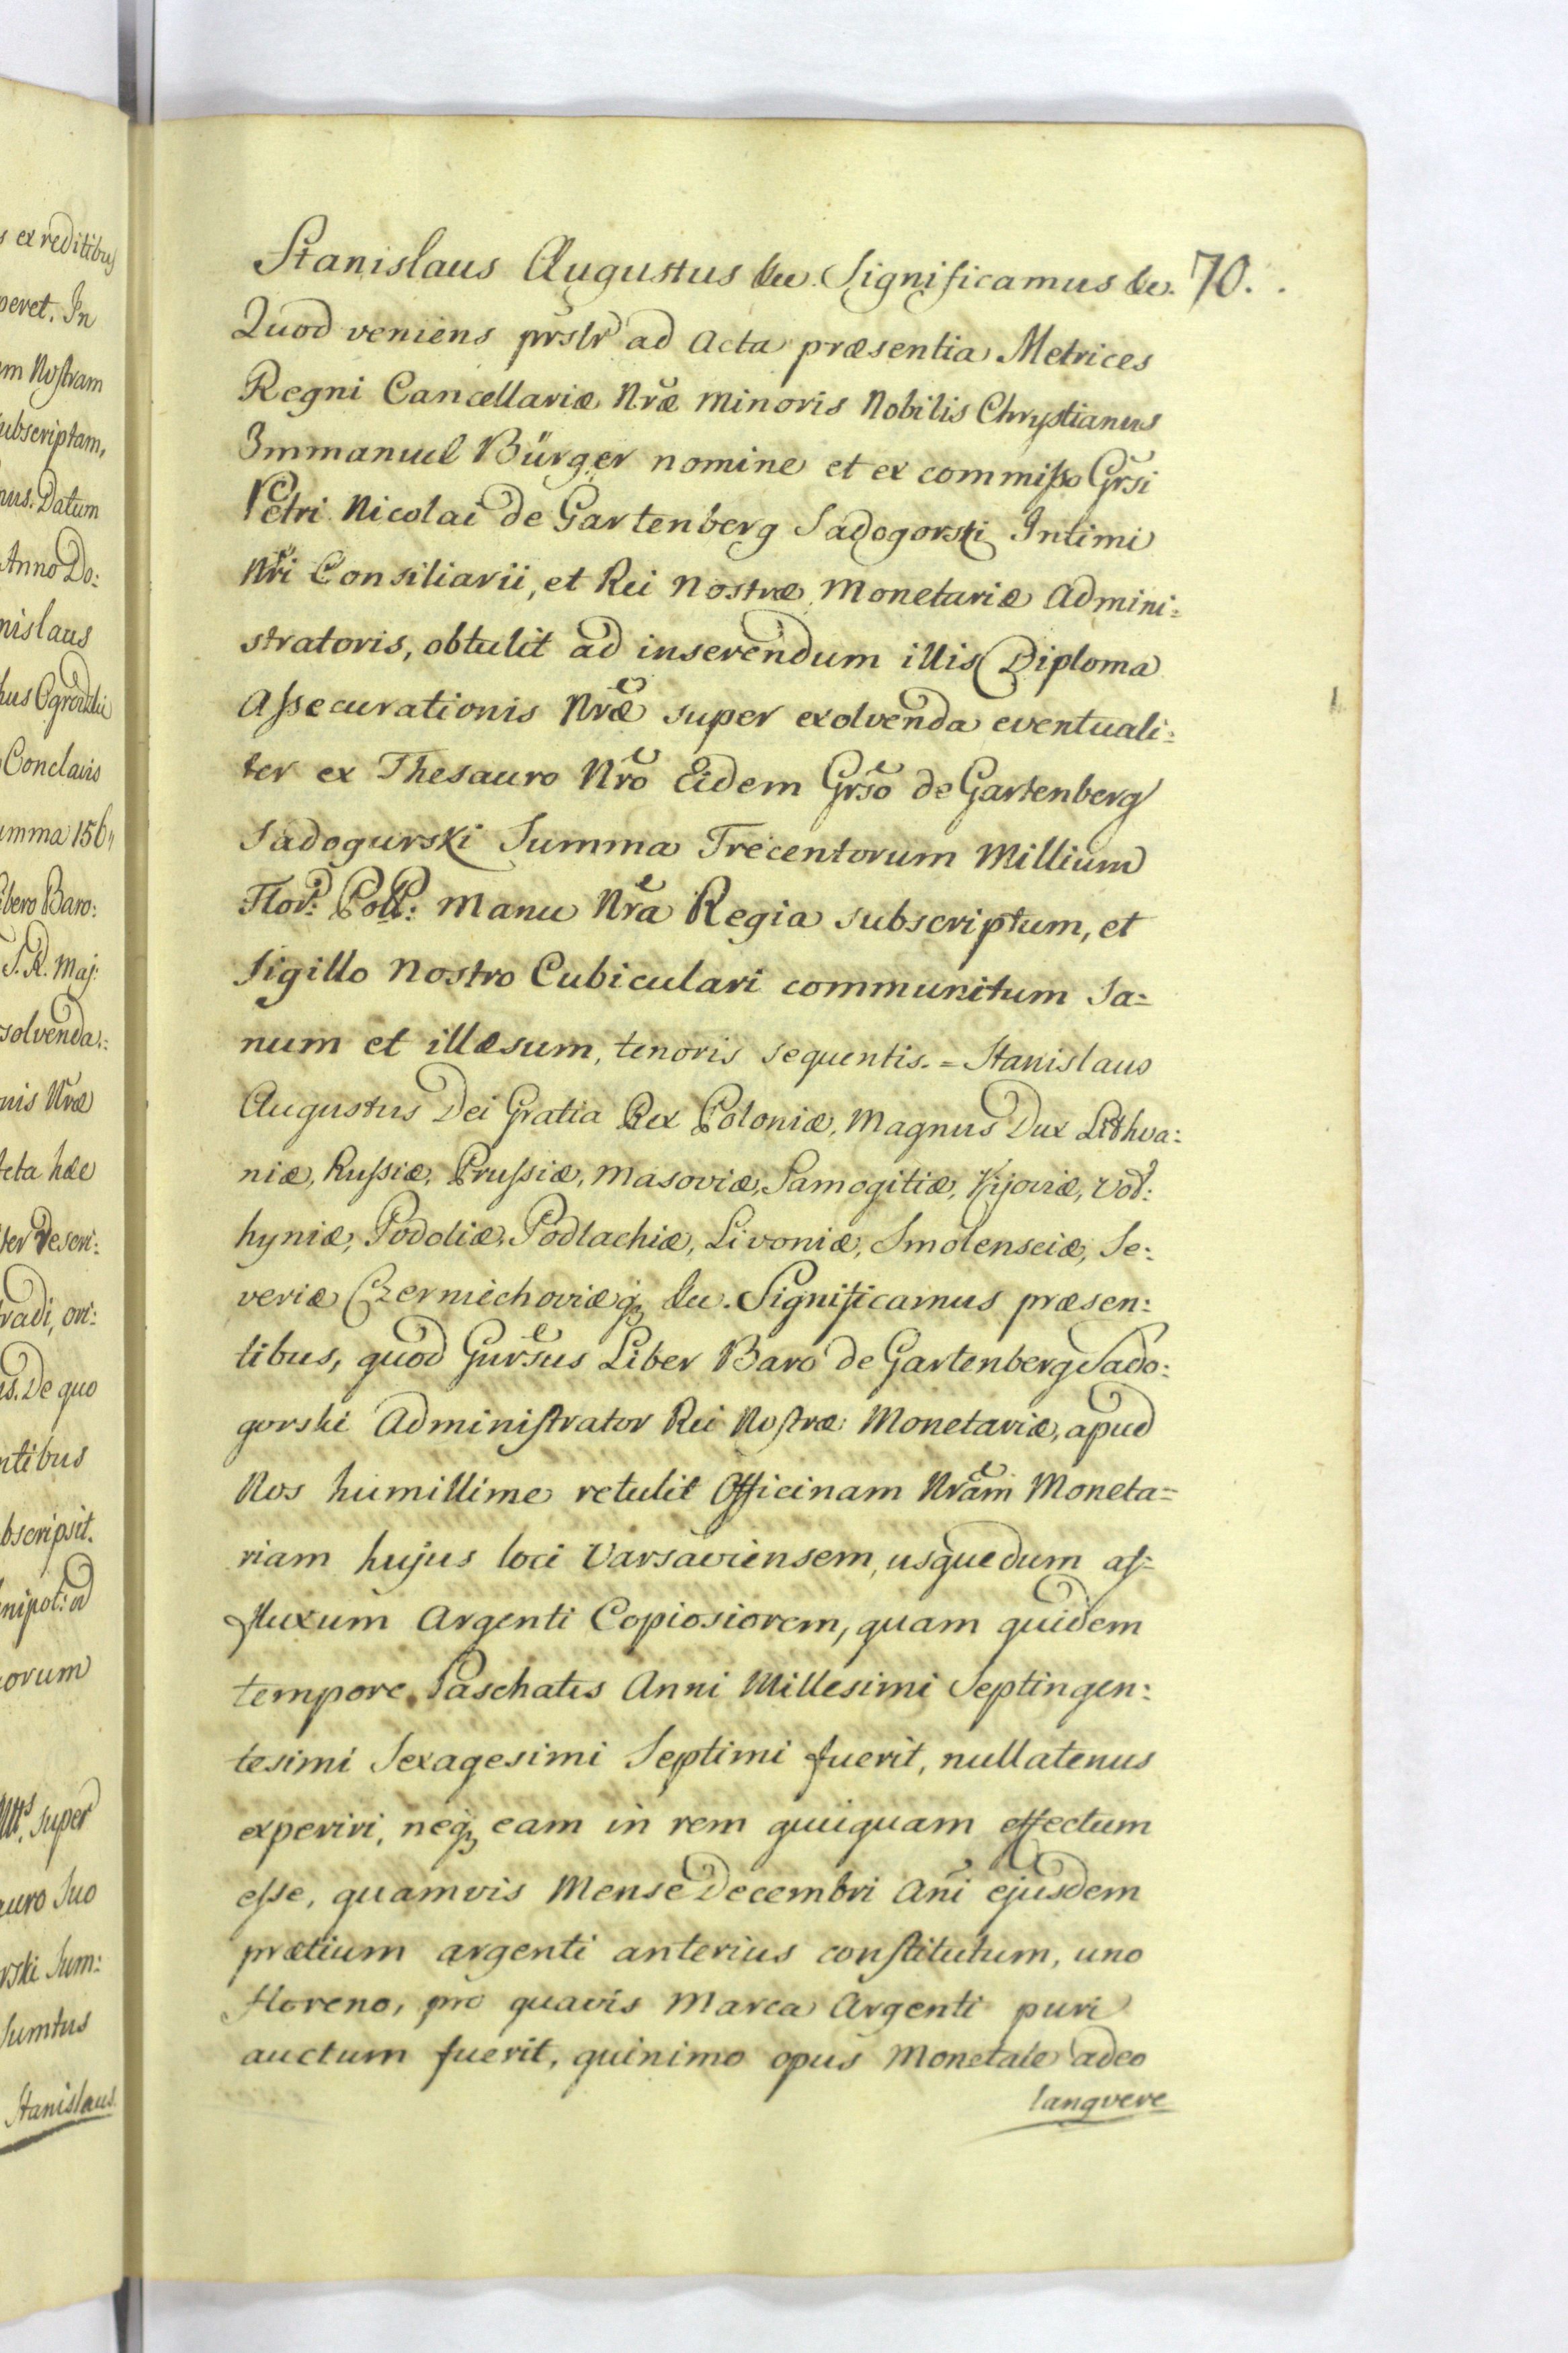 s ex reditibus
peret. In
m Nostram
ubscriptam,
nus. Datum
Anno Do:
nislaus
Conclavis
umma 156
ibero Baro:
S. R. Maj:
solvenda:
nis Nræ
cta hæc
ter descri:
tradi, ori:
is. De quo
ntibus
bscripsit.
nipot: ad
orum
Mtis super
auro Suo
rski Sum:
Sumtus
Stanislaus
Stanislaus Augustus &c. Significamus &c. 70.
Quod veniens prslr ad Acta præsentia Metrices
Regni Cancellariæ Nræ Minoris Nobilis Chrystianus
Immanuel Bürger nomine et ex commisso Grsi
Petri Nicolai de Gartenberg Sadogorski Intimi
Nri Consiliarii, et Rei Nostræ Monetariæ Admini:
stratoris, obtulit ad inserendum illis Diploma
Assecurationis Nræ super exolvenda eventuali:
ter ex Thesauro Nro Eidem Grso de Gartenberg
Sadogurski Summa Trecentorum Millium
Flor: Poll: Manu Nra Regia subscriptum, et
Sigillo Nostro Cubiculari communitum Sa=
num et illæsum, tenoris sequentis. = Stanislaus
Augustus Dei Gratia Rex Poloniæ, Magnus Dux Lithva:
niæ, Russiæ, Prussiæ, Masoviæ, Samogitiæ, Kijoviæ, Vol:
hyniæ, Podoliæ, Podlachiæ, Livoniæ, Smolensciæ, Se:
veriæ Czerniechoviæq &c. Significamus præsen:
tibus, quod Gursus Liber Baro de Gartenberg Sado:
gorski Administrator Rei Nostræ Monetariæ, apud
Nos humillime retulit Officinam Nram Moneta=
riam hujus loci Varsaviensem, usque dum af=
fluxum Argenti Copiosiorem, quam quidem
tempore Paschatis Anni Millesimi Septingen:
tesimi Sexagesimi Septimi fuerit, nullatenus
experiri, neq eam in rem quiquam effectum
esse, quamvis Mense Decembri Ani ejusdem
prætium argenti anterius constitutum, uno
floreno, pro quavis Marca Argenti puri
auctum fuerit, quinimo opus Monetale adeo
langvere